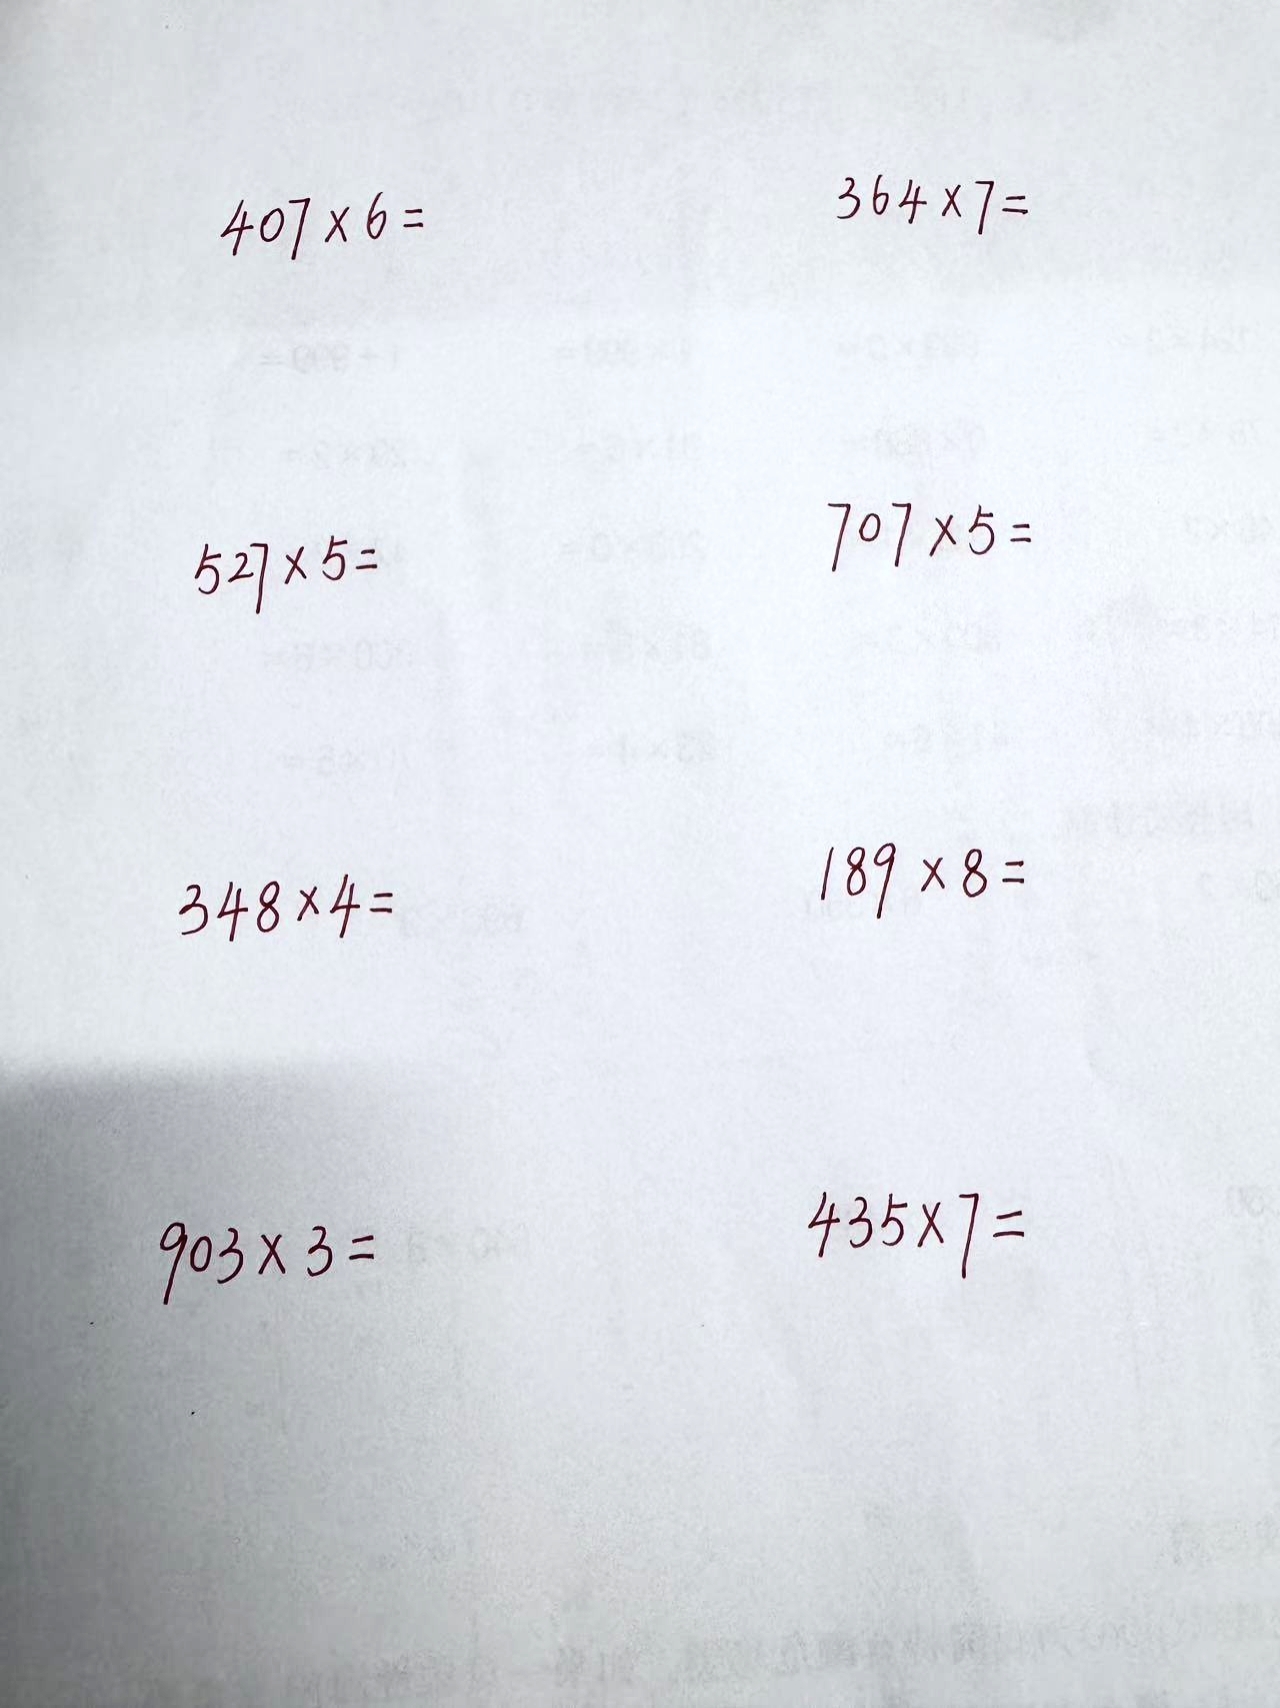 407×6=
364×7=
527×5=
707×5=
348×4=
189×8=
903×3=
435×7=